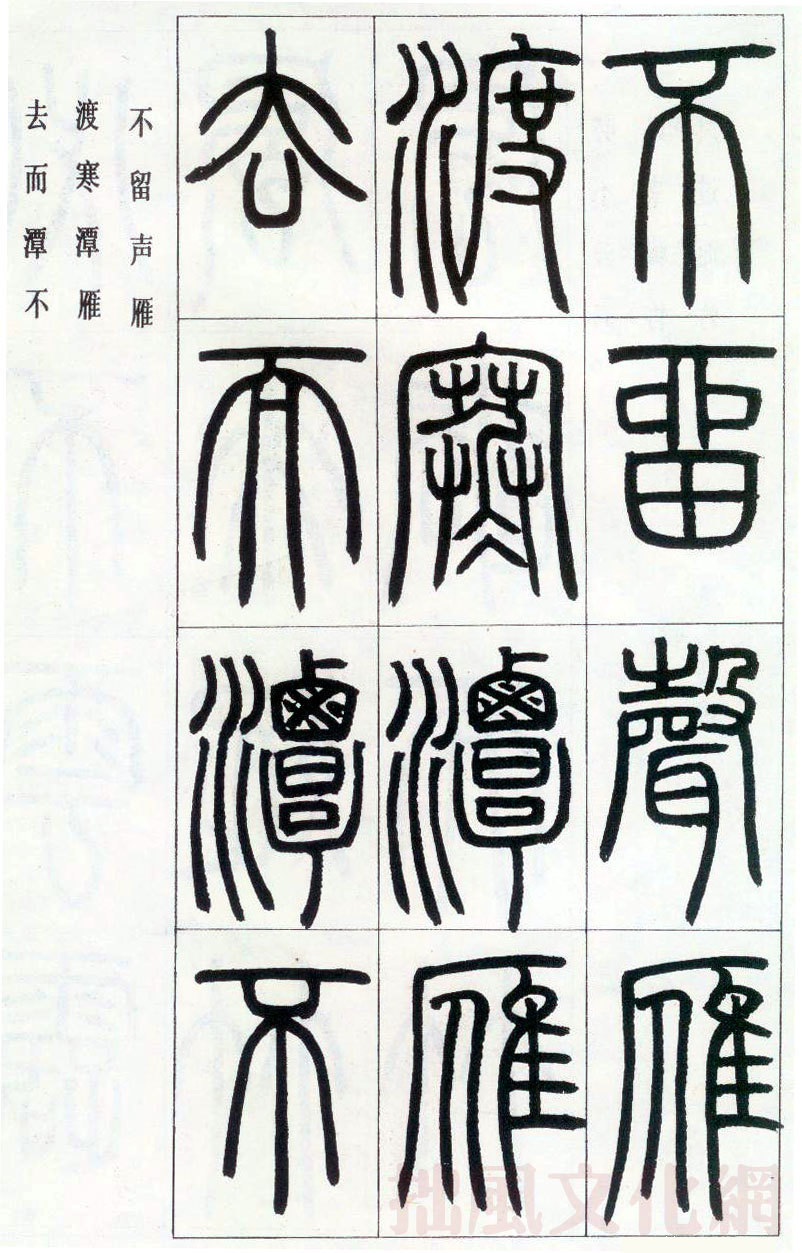 不留聲雁
渡寒潭雁
去而潭不
不留声雁
渡寒潭雁
去而潭不
拙風文化網